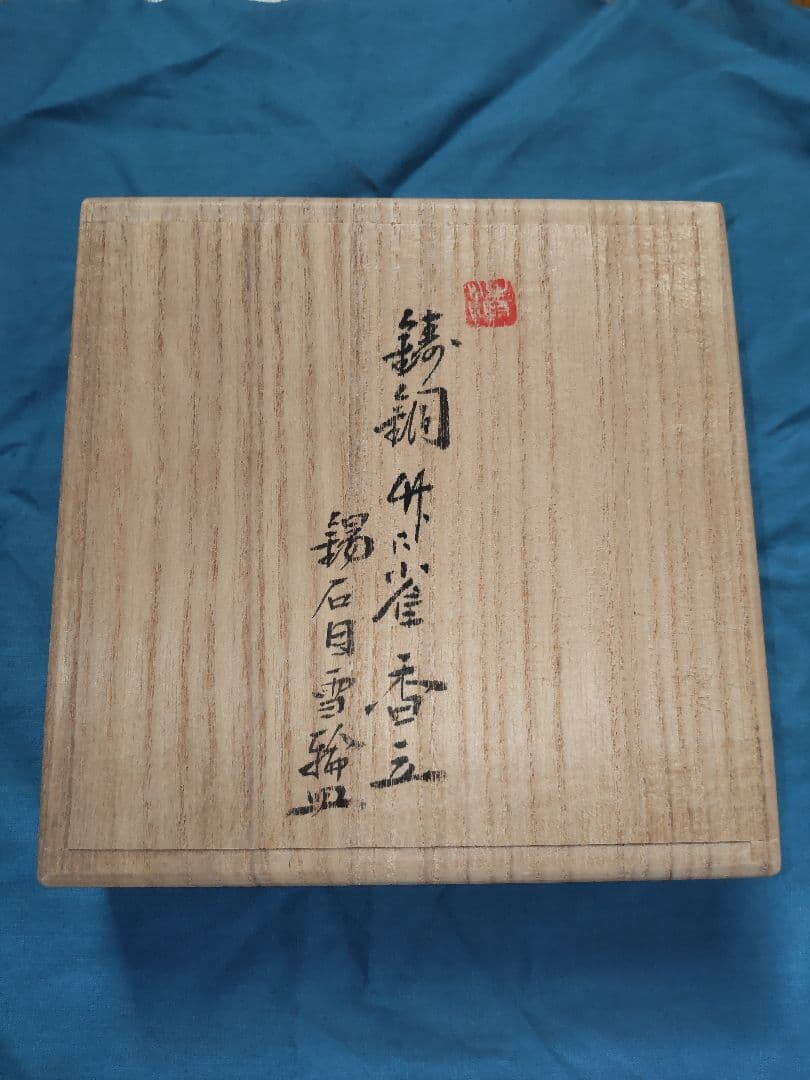 鋳銅 竹に雀 香立
錫石目雪輪皿